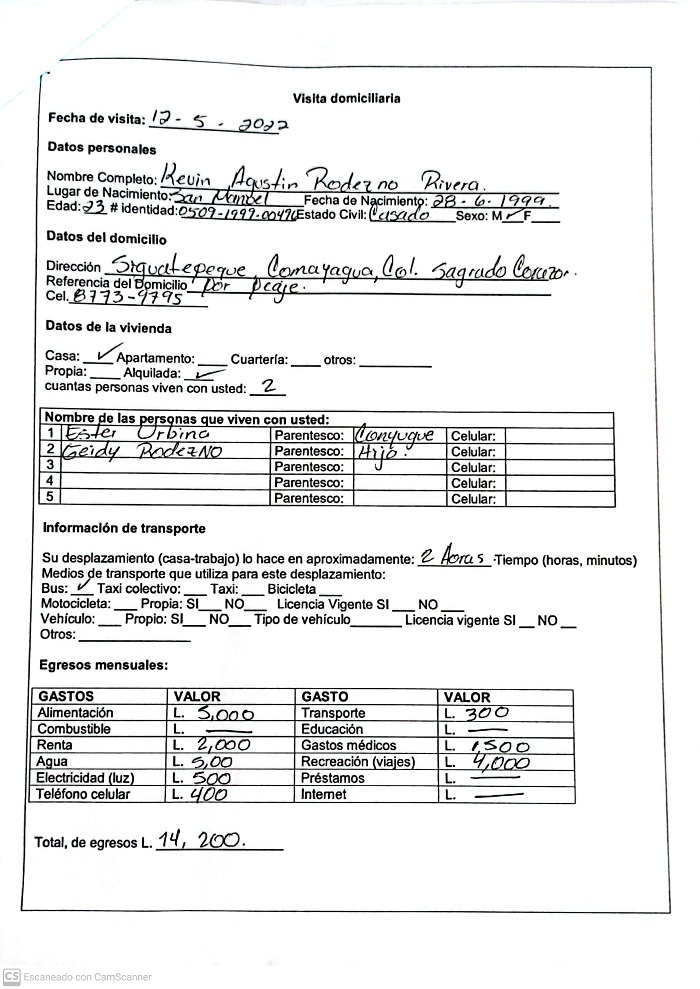 Visita domiciliaria
Fecha de visita: 12 - 5 - 2022
Datos personales
Nombre Completo: Kevin Agustin Rodezno Rivera.
Lugar de Nacimiento: San Manuel Fecha de Nacimiento: 28 - 6 - 1999.
Edad: 23 # identidad: 0509-1999-00476 Estado Civil: Casado Sexo: M ✓ F
Datos del domicilio
Dirección Siguatepeque, Comayagua, Col. Sagrado Corazon.
Referencia del Domicilio por peaje.
Cel. 8773-9795
Datos de la vivienda
Casa: ✓ Apartamento: ____ Cuartería: ____ otros: ____
Propia: ____ Alquilada: ✓
cuantas personas viven con usted: 2
Nombre de las personas que viven con usted:
1 Ester Urbina Parentesco: Conyugue Celular:
2 Geidy Rodezno Parentesco: Hijo. Celular:
3 Parentesco: Celular:
4 Parentesco: Celular:
5 Parentesco: Celular:
Información de transporte
Su desplazamiento (casa-trabajo) lo hace en aproximadamente: 2 Horas .Tiempo (horas, minutos)
Medios de transporte que utiliza para este desplazamiento:
Bus: ✓ Taxi colectivo: ___ Taxi: ___ Bicicleta ___
Motocicleta: ___ Propia: SI___ NO___ Licencia Vigente SI ___ NO ___
Vehículo: ___ Propio: SI___ NO___ Tipo de vehículo______ Licencia vigente SI __ NO __
Otros: ____
Egresos mensuales:
GASTOS VALOR GASTO VALOR
Alimentación L. 5,000 Transporte L. 300
Combustible L. — Educación L. —
Renta L. 2,000 Gastos médicos L. 1,500
Agua L. 5,00 Recreación (viajes) L. 4,000
Electricidad (luz) L. 500 Préstamos L. —
Teléfono celular L. 400 Internet L. —
Total, de egresos L. 14, 200.
CS Escaneado con CamScanner